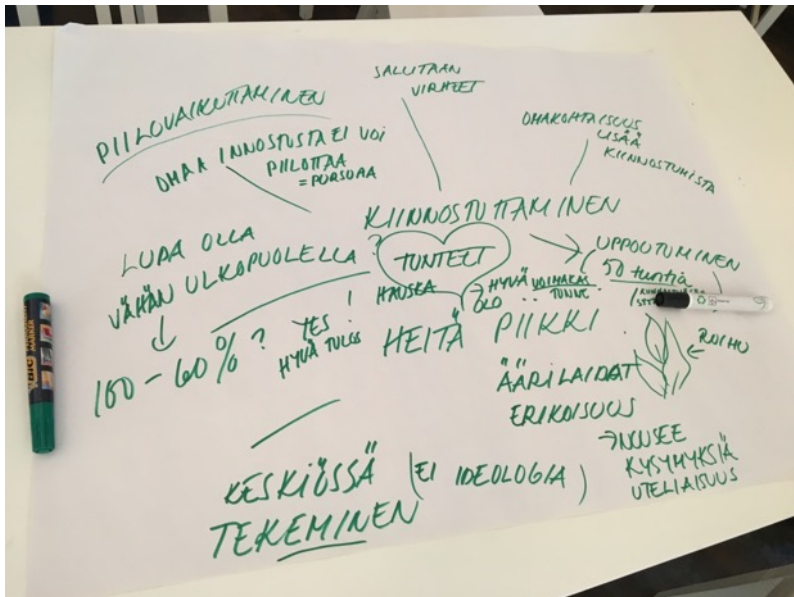 SALLITAAN
VIRHEET
PIILOVAIKUTTAMINEN
OMAA INNOSTUSTA EI VOI
PIILOTTAA
= PURSOAA
OMAKOHTAISUUS
LISÄÄ
KIINNOSTUMISTA
KIINNOSTUTTAMINEN
LUPA OLLA
VÄHÄN ULKOPUOLELLA ?
100 - 60% ?
TUNTEET
HAUSKA
→ HYVÄ
OLO
VOIMAKAS
TUNNE
UPPOUTUMINEN
50 tuntia
!
YES
HYVÄ TULOS
HEITÄ PIIKKI
ROIHU
ÄÄRILAIDAT
ERIKOISUUS
→ NOUSEE
KYSYMYKSIÄ
UTELIAISUUS
KESKIÖSSÄ (EI IDEOLOGIA)
TEKEMINEN
BIC
MARKER